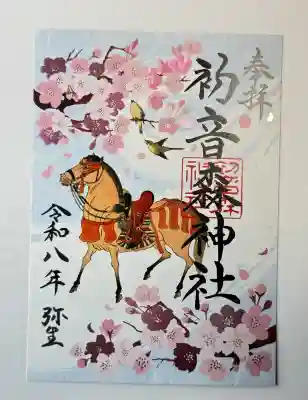 奉拝
初音森神社
令和八年 弥生